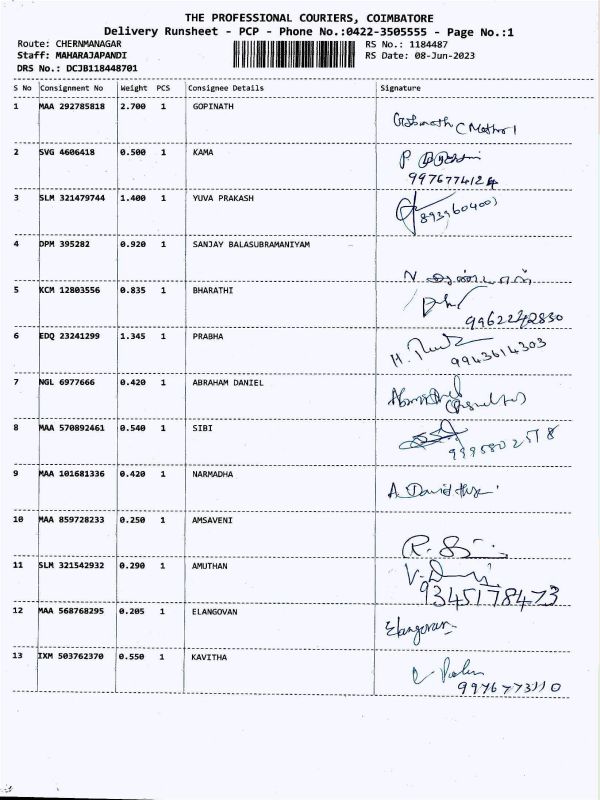 THE PROFESSIONAL COURIERS, COIMBATORE
Delivery Runsheet - PCP - Phone No.:0422-3505555 - Page No.:1
Route: CHERNMANAGAR RS No.: 1184487
Staff: MAHARAJAPANDI RS Date: 08-Jun-2023
DRS No.: DCJB118448701
S No Consignment No Weight PCS Consignee Details Signature
1 MAA 292785818 2.700 1 GOPINATH
2 SVG 4606418 0.500 1 KAMA
9976774124
3 SLM 321479744 1.400 1 YUVA PRAKASH
4 DPM 395282 0.920 1 SANJAY BALASUBRAMANIYAM
5 KCM 12803556 0.835 1 BHARATHI
9962242830
6 EDQ 23241299 1.345 1 PRABHA
9943614303
7 NGL 6977666 0.420 1 ABRAHAM DANIEL
8 MAA 570892461 0.540 1 SIBI
9995802578
9 MAA 101681336 0.420 1 NARMADHA
A David
10 MAA 859728233 0.250 1 AMSAVENI
11 SLM 321542932 0.290 1 AMUTHAN
9345178473
12 MAA 568768295 0.205 1 ELANGOVAN
Elangovan
13 IXM 503762370 0.550 1 KAVITHA
9976773110